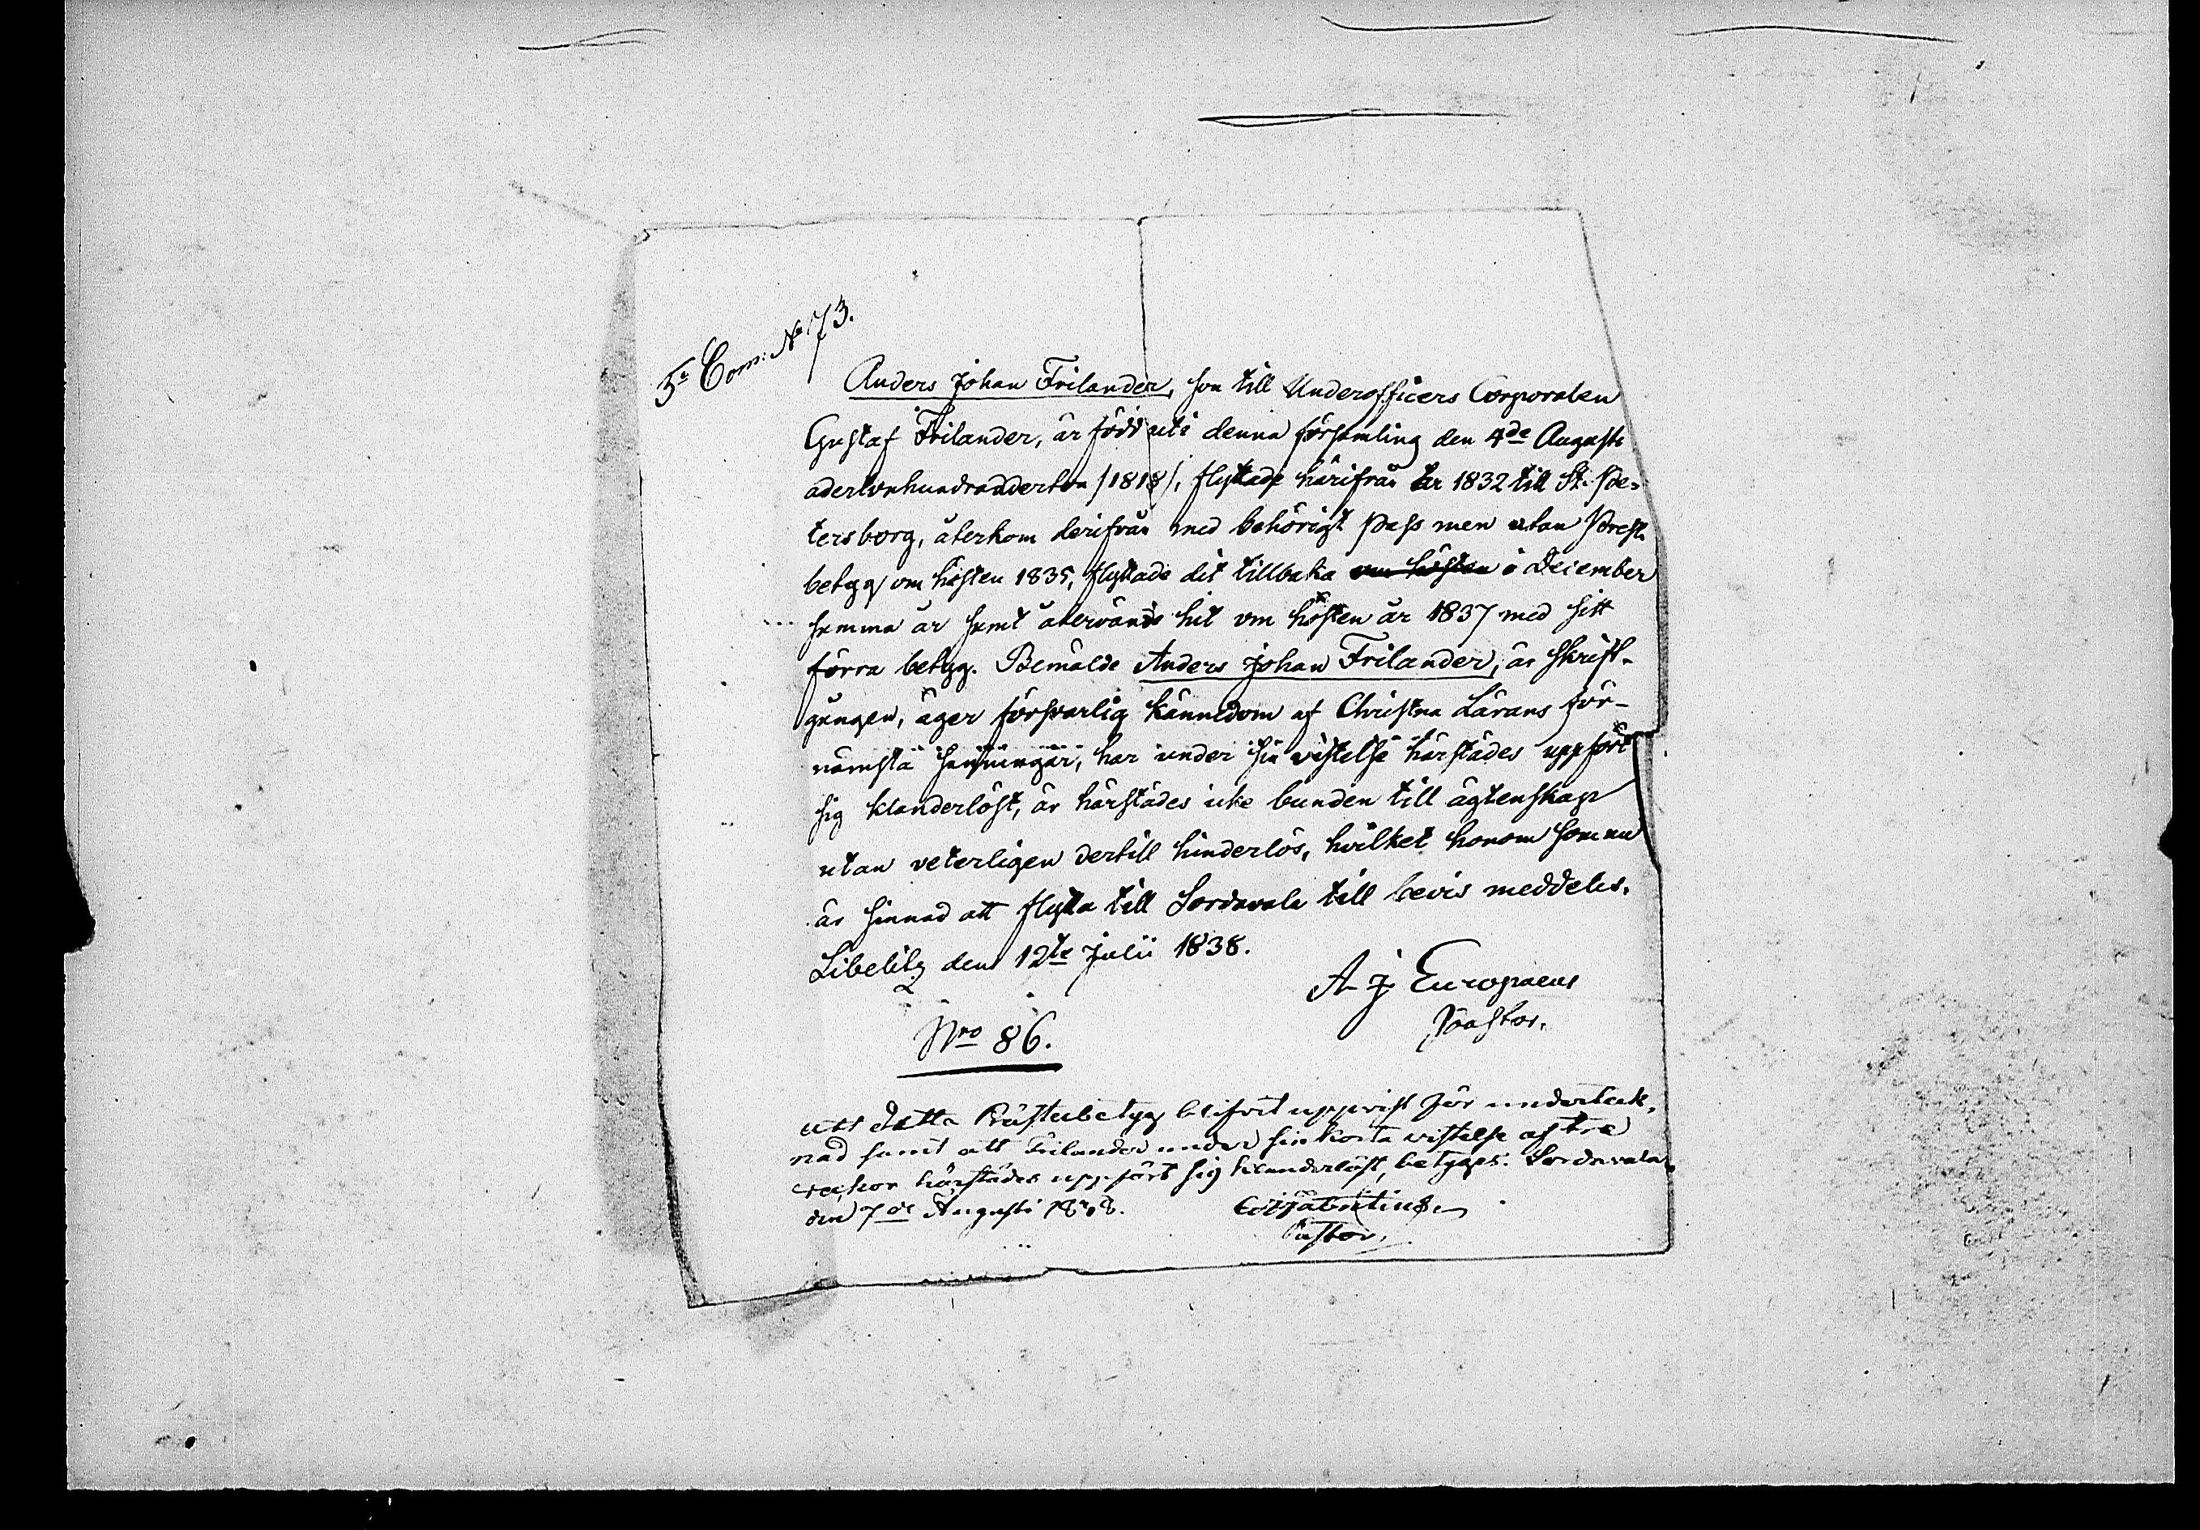 5te Com: No 73.
Anders Johan Frilander, son till Underofficers Corporalen
Gustaf Frilander, är född uti denna församling den 4de Augusti
adertonhundraaderton /1818/, flyttade härifrån år 1832 till St. Pe-
tersborg, återkom derifrån med behörigt pass men utan Prest-
betyg om hösten 1835, flyttade dit tillbaka om hösten i December
samma år samt återvände hit om hösten år 1837 med sitt
förra betyg. Bemälde Anders Johan Frilander, är skrift-
gången, äger försvarlig kännedom af Christna Lärans för-
nämsta sanningar, har under sin vistelse härstädes uppfört
sig klanderlöst, är härstädes icke bunden till ägtenskap
utan veterligen dertill hinderlös, hvilket honom som nu
är sinnad att flytta till Sordavala till bevis meddeles.
Libelitz den 12te Julii 1838.
A J Europaeus
Pastor.
Nro 86.
Att detta Prästebetyg blifvit uppvist för underteck-
nad samt att Frilander under sin korta vistelse af tre
veckor härstädes uppfört sig klanderlöst, betygas. Sordavala
den 7de Augusti 1838.
Pastor.